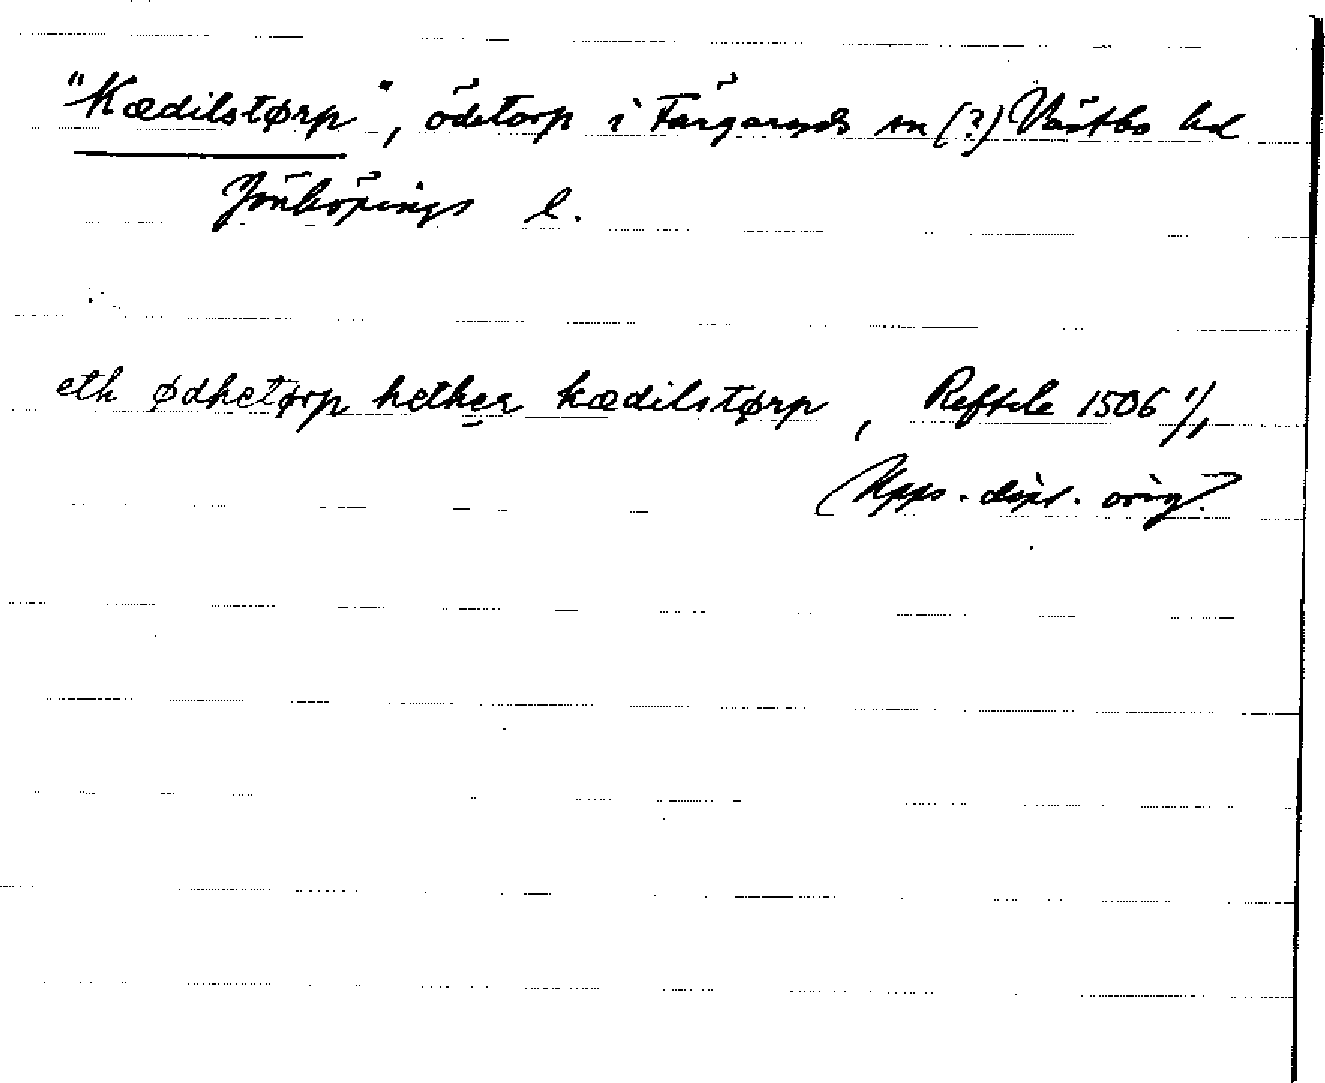 "Kædilstørp", ödetorp i Färgaryds sn (?) Västbo hd
Jönköpings l.
eth ødhetørp hether kædilstørp, Reftele 1506 1/1
Upps. dipl. orig.